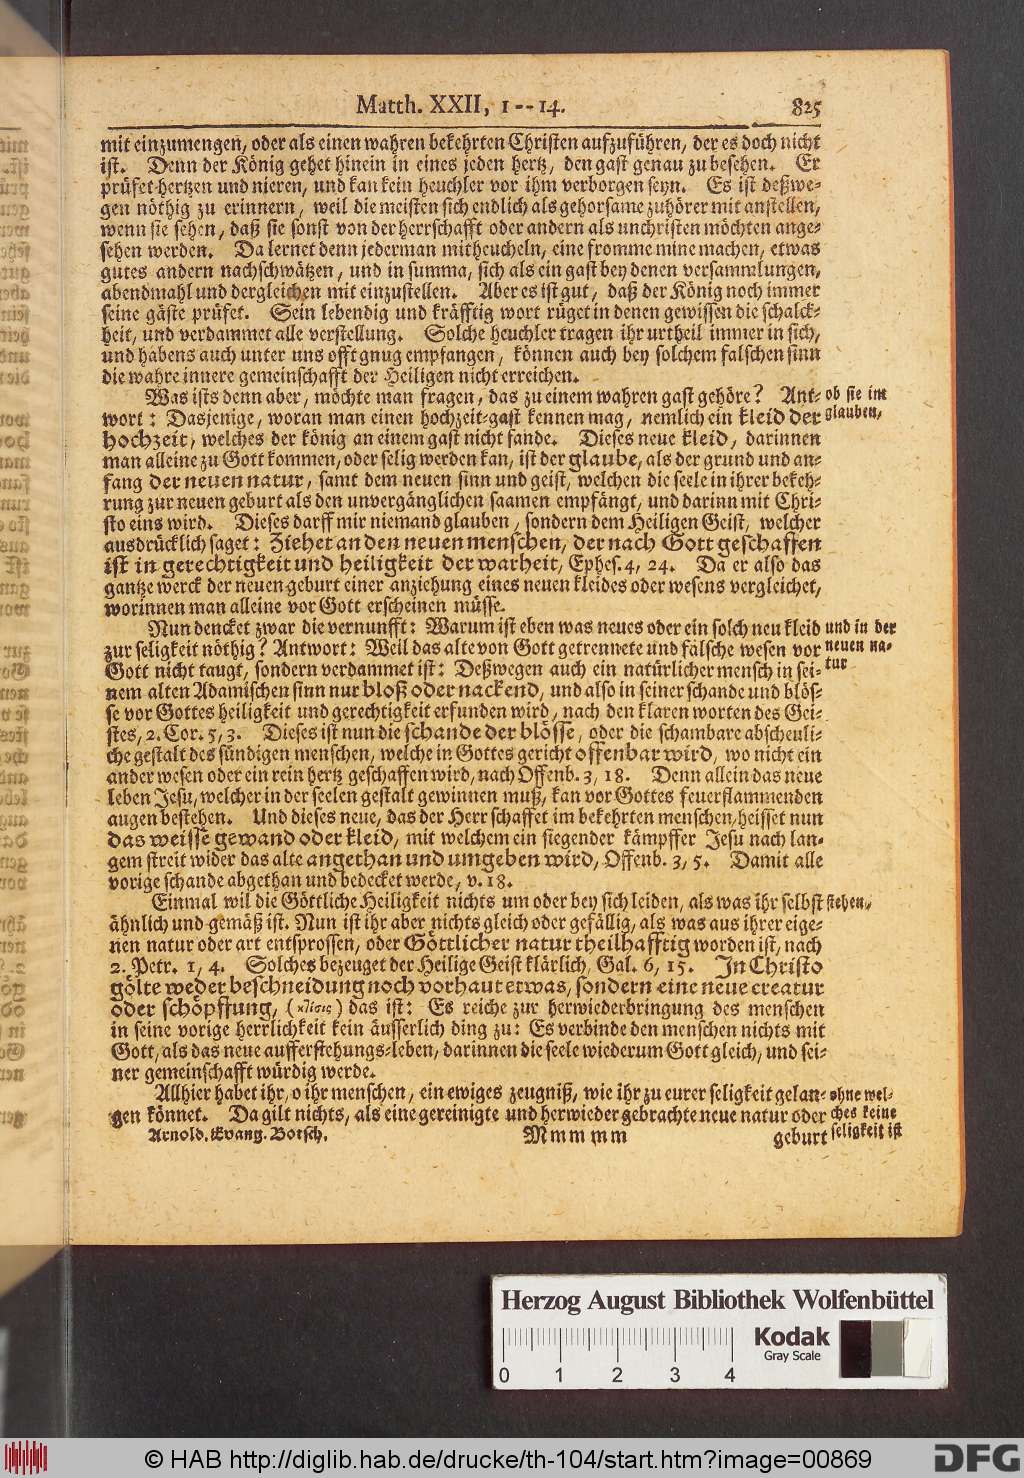 Matth. XXII, 1--14. 825
mit einzumengen, oder als einen wahren bekehrten Christen aufzuführen, der es doch nicht
ist. Denn der König gehet hinein in eines jeden hertz, den gast genau zu besehen. Er
prüfet hertzen und nieren, und kan kein heuchler vor ihm verborgen seyn. Es ist deßwe-
gen nöthig zu erinnern, weil die meisten sich endlich als gehorsame zuhörer mit anstellen,
wenn sie sehen, daß sie sonst von der herrschafft oder andern als unchristen möchten ange-
sehen werden. Da lernet denn jederman mitheucheln, eine fromme mine machen, etwas
gutes andern nachschwätzen, und in summa, sich als ein gast bey denen versammlungen,
abendmahl und dergleichen mit einzustellen. Aber es ist gut, daß der König noch immer
seine gäste prüfet. Sein lebendig und kräfftig wort rüget in denen gewissen die schalck-
heit, und verdammet alle verstellung. Solche heuchler tragen ihr urtheil immer in sich,
und habens auch unter uns offt gnug empfangen, können auch bey solchem falschen sinn
die wahre innere gemeinschafft der Heiligen nicht erreichen.
Was ists denn aber, möchte man fragen, das zu einem wahren gast gehöre? Ant- ob sie im
wort: Dasjenige, woran man einen hochzeit-gast kennen mag, nemlich ein kleid der glauben,
hochzeit, welches der könig an einem gast nicht fande. Dieses neue kleid, darinnen
man alleine zu Gott kommen, oder selig werden kan, ist der glaube, als der grund und an-
fang der neuen natur, samt dem neuen sinn und geist, welchen die seele in ihrer bekeh-
rung zur neuen geburt als den unvergänglichen saamen empfängt, und darinn mit Chri-
sto eins wird. Dieses darff mir niemand glauben, sondern dem Heiligen Geist, welcher
ausdrücklich saget: Ziehet an den neuen menschen, der nach Gott geschaffen
ist in gerechtigkeit und heiligkeit der warheit, Ephes. 4, 24. Da er also das
gantze werck der neuen geburt einer anziehung eines neuen kleides oder wesens vergleichet,
worinnen man alleine vor Gott erscheinen müsse.
Nun dencket zwar die vernunfft: Warum ist eben was neues oder ein solch neu kleid und in der
zur seligkeit nöthig? Antwort: Weil das alte von Gott getrennete und falsche wesen vor neuen na-
Gott nicht taugt, sondern verdammet ist: Deßwegen auch ein natürlicher mensch in sei- tur
nem alten Adamischen sinn nur bloß oder nackend, und also in seiner schande und blös-
se vor Gottes heiligkeit und gerechtigkeit erfunden wird, nach den klaren worten des Gei-
stes, 2. Cor. 5, 3. Dieses ist nun die schande der blösse, oder die schambare abscheuli-
che gestalt des sündigen menschen, welche in Gottes gericht offenbar wird, wo nicht ein
ander wesen oder ein rein hertz geschaffen wird, nach Offenb. 3, 18. Denn allein das neue
leben Jesu, welcher in der seelen gestalt gewinnen muß, kan vor Gottes feuerflammenden
augen bestehen. Und dieses neue, das der Herr schaffet im bekehrten menschen, heisset nun
das weisse gewand oder kleid, mit welchem ein siegender kämpffer Jesu nach lan-
gem streit wider das alte angethan und umgeben wird, Offenb. 3, 5. Damit alle
vorige schande abgethan und bedecket werde, v. 18.
Einmal wil die Göttliche Heiligkeit nichts um oder bey sich leiden, als was ihr selbst stehen,
ähnlich und gemäß ist. Nun ist ihr aber nichts gleich oder gefällig, als was aus ihrer eige-
nen natur oder art entsprossen, oder Göttlicher natur theilhafftig worden ist, nach
2. Petr. 1, 4. Solches bezeuget der Heilige Geist klärlich, Gal. 6, 15. In Christo
gölte weder beschneidung noch vorhaut etwas, sondern eine neue creatur
oder schöpffung, (κτίσις) das ist: Es reiche zur herwiederbringung des menschen
in seine vorige herrlichkeit kein äusserlich ding zu: Es verbinde den menschen nichts mit
Gott, als das neue aufferstehungs-leben, darinnen die seele wiederum Gott gleich, und sei-
ner gemeinschafft würdig werde.
Allhier habet ihr, o ihr menschen, ein ewiges zeugniß, wie ihr zu eurer seligkeit gelan- ohne wel-
gen könnet. Da gilt nichts, als eine gereinigte und herwieder gebrachte neue natur oder ches keine
Arnold. Evang. Botsch. Mmmmm geburt seligkeit ist
Herzog August Bibliothek Wolfenbüttel
Kodak
Gray Scale
0 1 2 3 4
© HAB http://diglib.hab.de/drucke/th-104/start.htm?image=00869
DFG